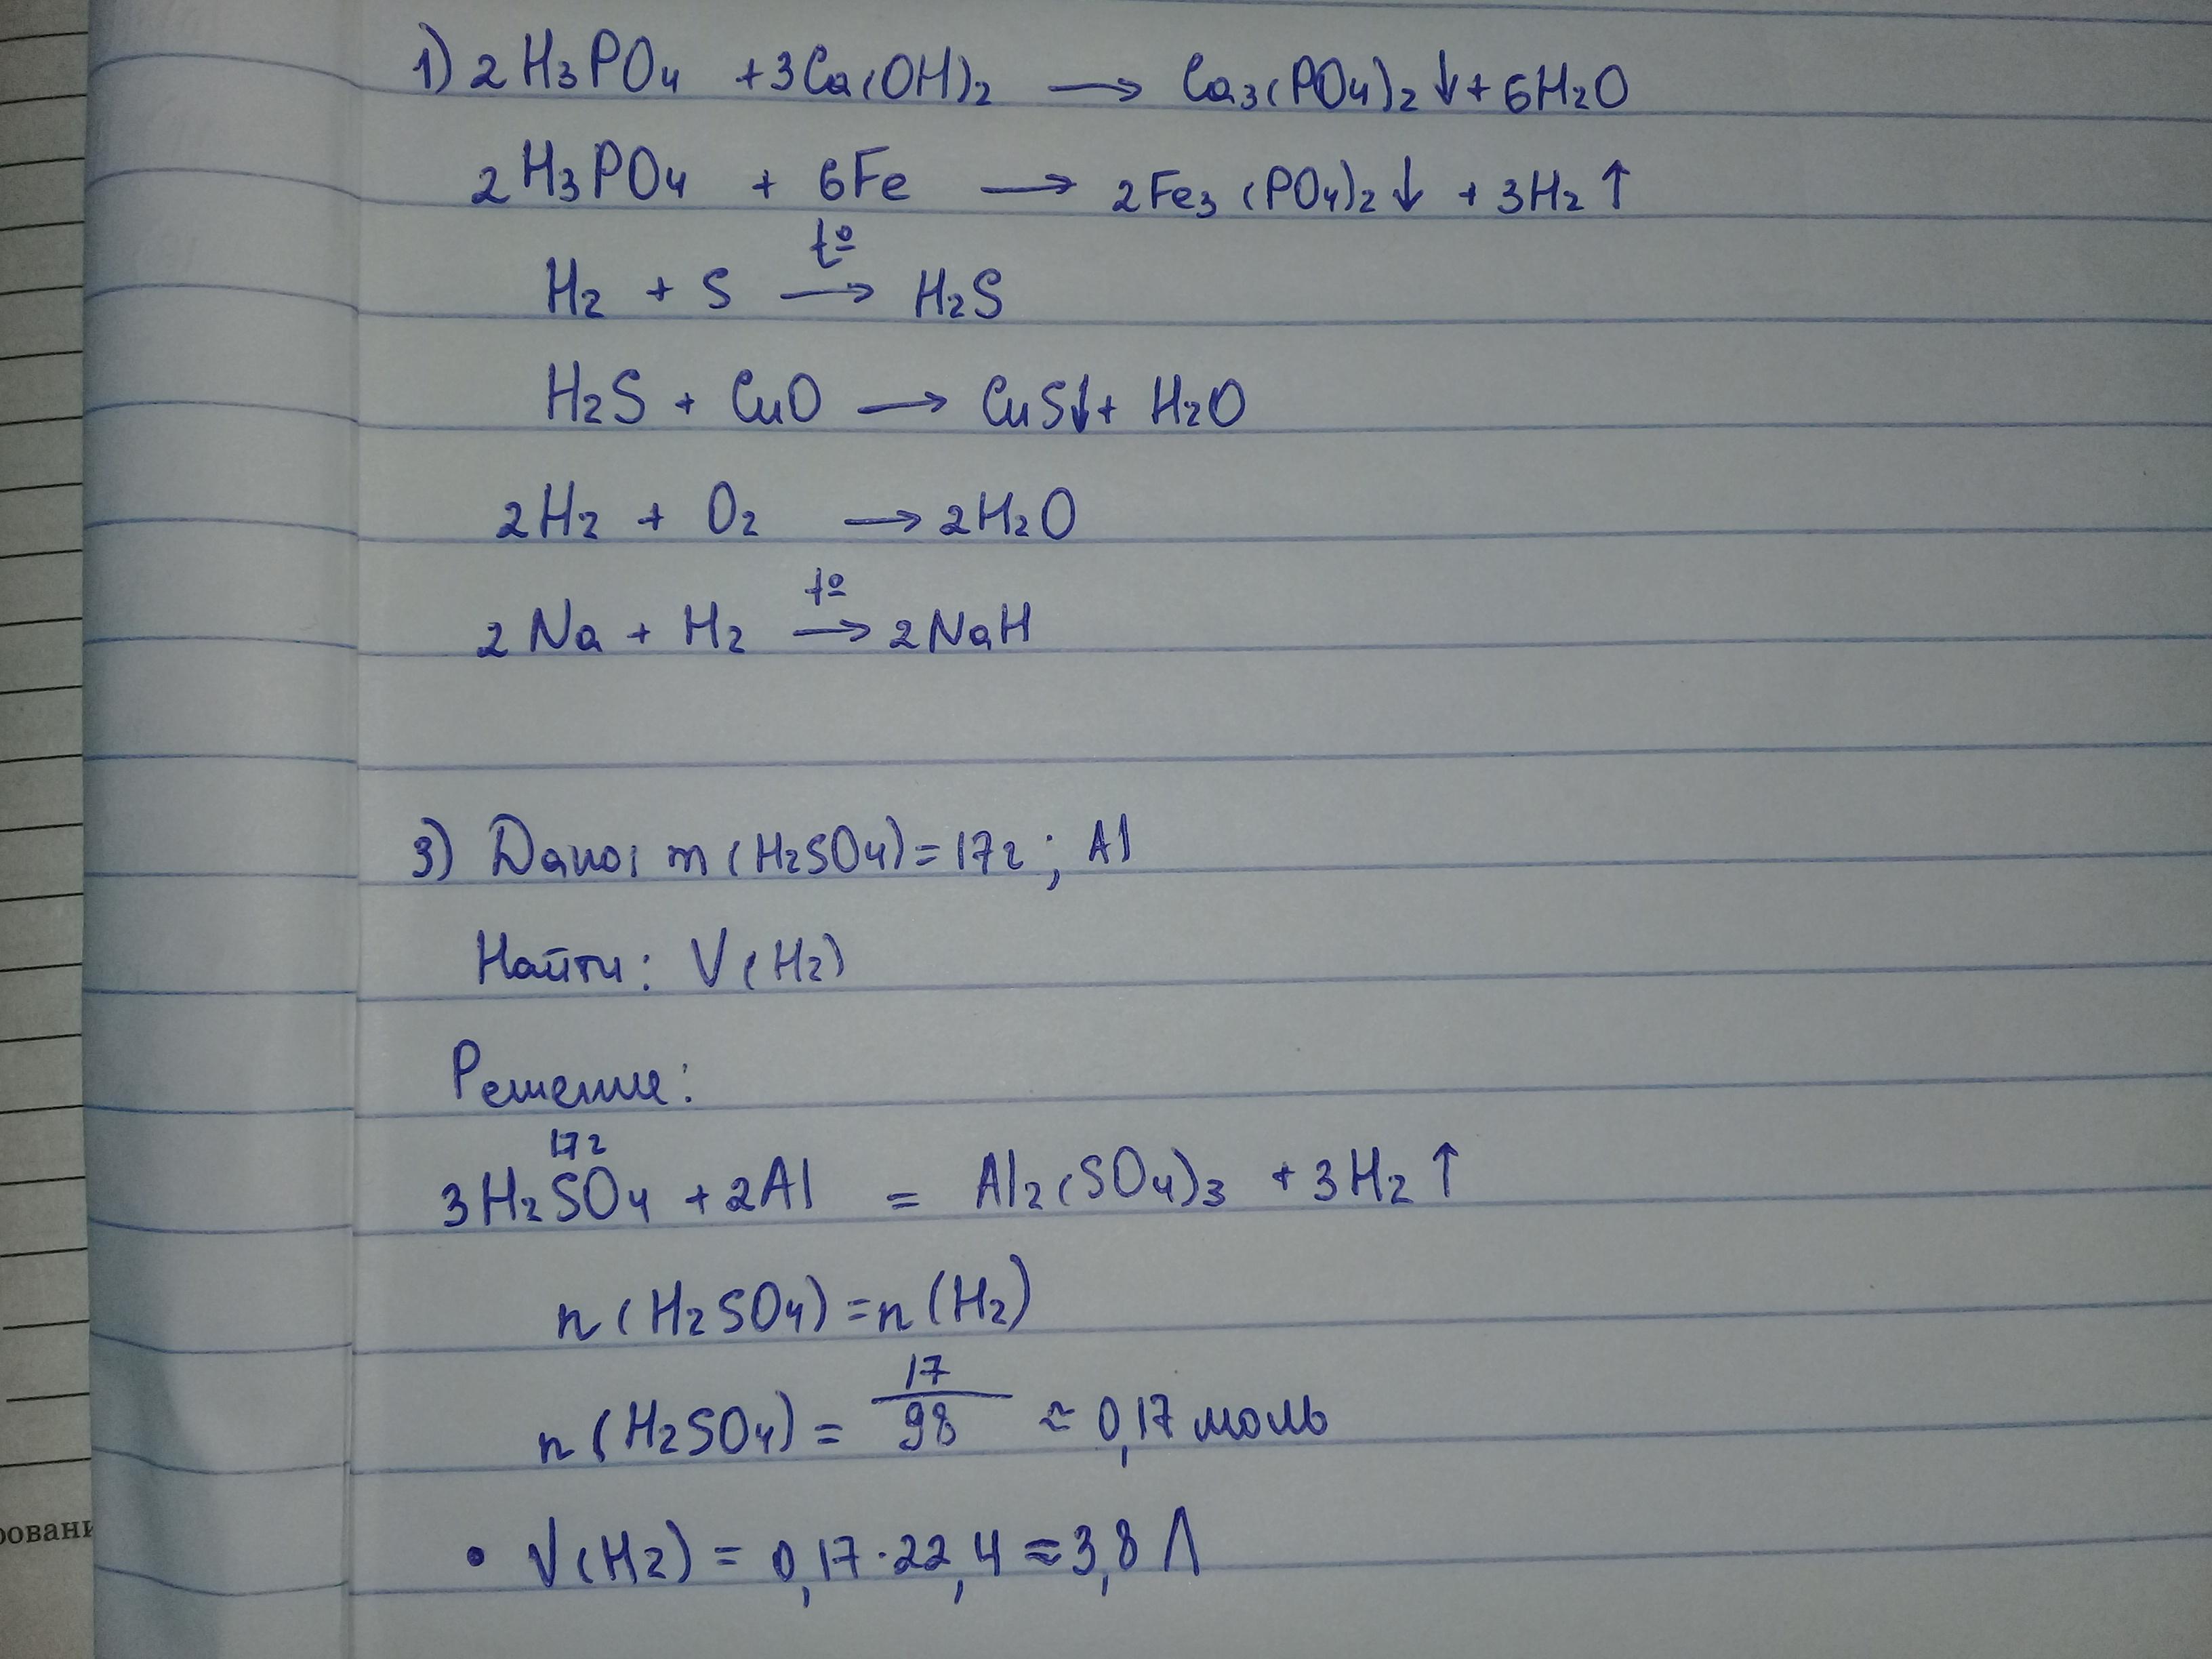 1) 2H₃PO₄ + 3Ca(OH)₂ → Ca₃(PO₄)₂↓ + 6H₂O
2H₃PO₄ + 6Fe → 2Fe₃(PO₄)₂↓ + 3H₂↑
t°
H₂ + S → H₂S
H₂S + CuO → CuS↓ + H₂O
2H₂ + O₂ → 2H₂O
t°
2Na + H₂ → 2NaH
3) Дано: m(H₂SO₄) = 17г; Al
Найти: V(H₂)
Решение:
17г
3H₂SO₄ + 2Al = Al₂(SO₄)₃ + 3H₂↑
n(H₂SO₄) = n(H₂)
n(H₂SO₄) = 17/98 ≈ 0,17 моль
• V(H₂) = 0,17·22,4 ≈ 3,8 Л
ровани